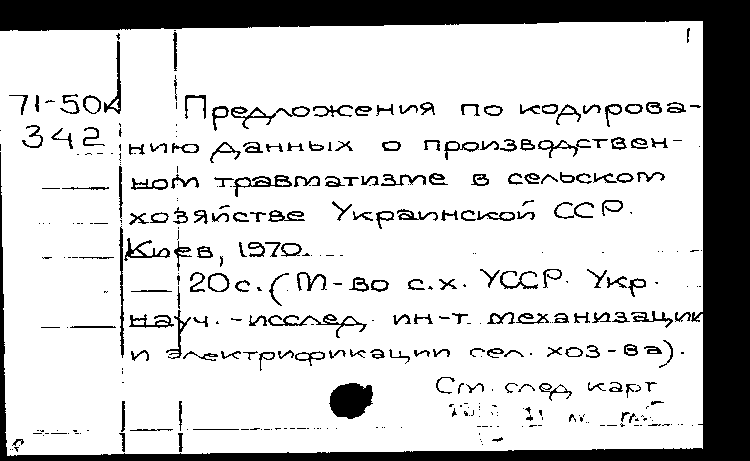 1
71-50к Предложения по кодирова-
342 нию данных о производствен-
ном травматизме в сельском
хозяйстве Украинской ССР.
Киев, 1970.
20с. (М-во с.х. УССР. Укр.
науч.-исслед. ин-т механизации
и электрификации сел. хоз-ва).
См. след. карт